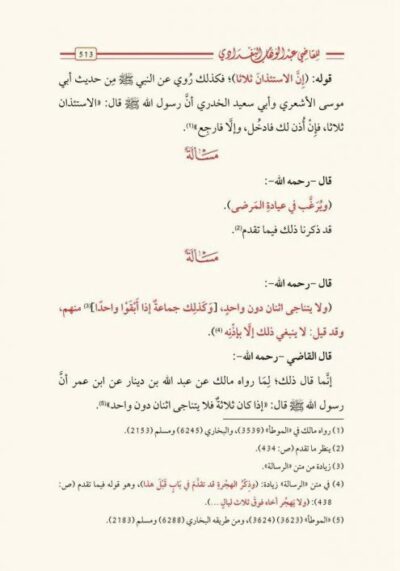 للقاضي عبد الوهاب البغدادي
513
قوله: (إنَّ الاستئذانَ ثلاثا)؛ فكذلك رُوي عن النبي ﷺ مِن حديث أبي
موسى الأشعري وأبي سعيد الخدري أنَّ رسول الله ﷺ قال: «الاستئذان
ثلاثا، فإنْ أُذن لك فادخُل، وإلَّا فارجِع»(1).
مَسْأَلَةٌ
قال -رحمه الله-:
(ويُرَغَّب في عيادةِ المَرضى).
قد ذكرنا ذلك فيما تقدم(2).
مَسْأَلَةٌ
قال -رحمه الله-:
(ولا يتناجى اثنان دون واحدٍ، [وَكَذلِك جماعةٌ إذا أَبْقَوْا واحدًا](3) منهم،
وقد قيل: لا ينبغي ذلك إلَّا بإذْنِه (4)).
قال القاضي -رحمه الله-:
إنَّما قال ذلك؛ لِمَا رواه مالك عن عبد الله بن دينار عن ابن عمر أنَّ
رسول الله ﷺ قال: «إذا كان ثلاثةٌ فلا يتناجى اثنان دون واحد»(5).
(1) رواه مالك في «الموطأ» (3539)، والبخاري (6245) ومسلم (2153).
(2) ينظر ما تقدم (ص: 434).
(3) زيادة من متن «الرسالة».
(4) في متن «الرسالة» زيادة: (وذِكْرُ الهجْرةِ قد تقدَّمَ في بَابٍ قَبْلَ هذا)، وهو قوله فيما تقدم (ص:
438): (ولا يَهجُر أخاه فوقَ ثلاث ليالٍ ...).
(5) «الموطأ» (3623) (3624)، ومن طريقه البخاري (6288) ومسلم (2183).